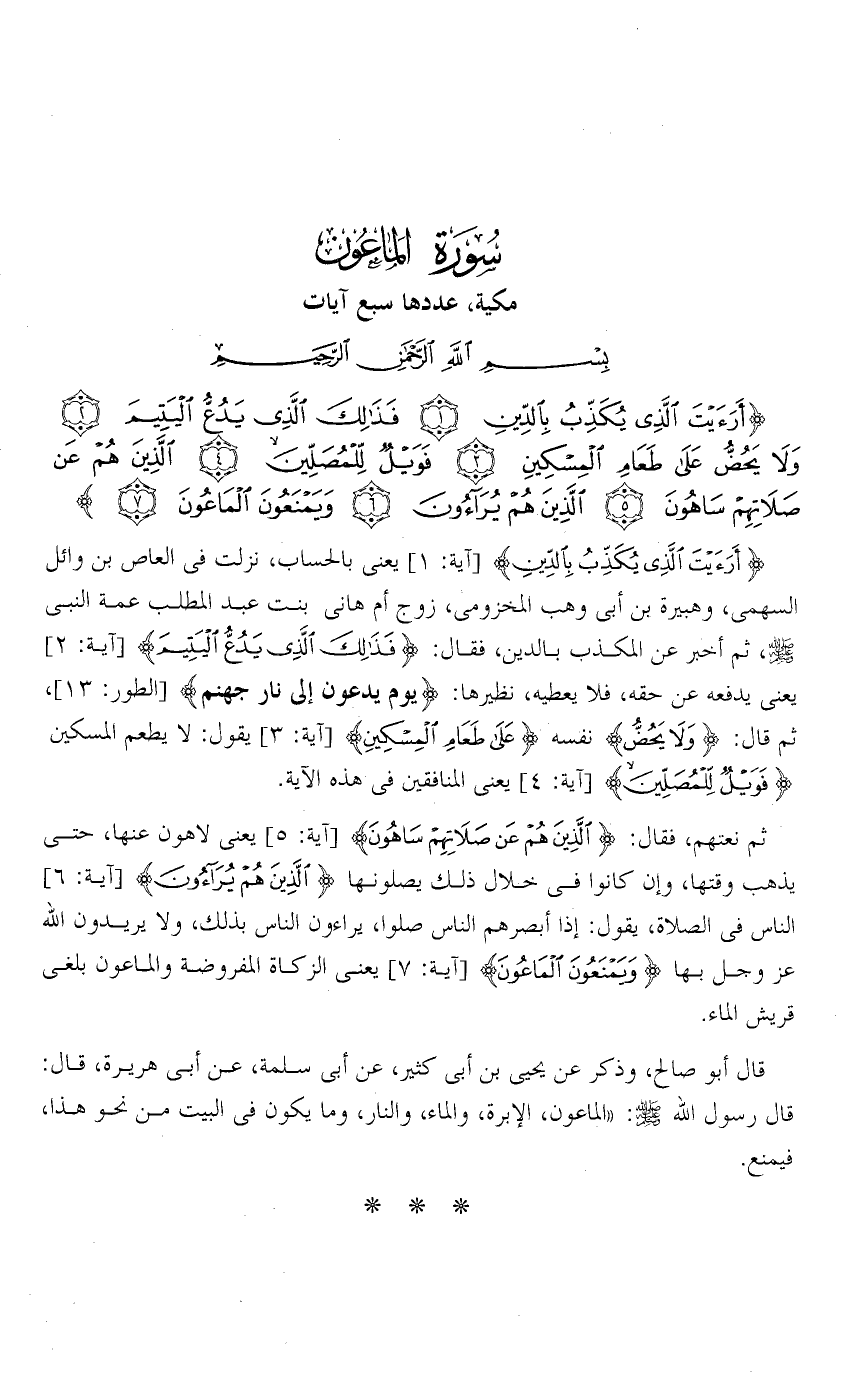 سُورَةُ المَاعُون
مكية، عددها سبع آيات
بِسْمِ ٱللَّهِ ٱلرَّحْمَٰنِ ٱلرَّحِيمِ
﴿أَرَءَيْتَ ٱلَّذِى يُكَذِّبُ بِٱلدِّينِ ١ فَذَٰلِكَ ٱلَّذِى يَدُعُّ ٱلْيَتِيمَ ٢
وَلَا يَحُضُّ عَلَىٰ طَعَامِ ٱلْمِسْكِينِ ٣ فَوَيْلٌ لِّلْمُصَلِّينَ ٤ ٱلَّذِينَ هُمْ عَن
صَلَاتِهِمْ سَاهُونَ ٥ ٱلَّذِينَ هُمْ يُرَآءُونَ ٦ وَيَمْنَعُونَ ٱلْمَاعُونَ ٧﴾
﴿أَرَءَيْتَ ٱلَّذِى يُكَذِّبُ بِٱلدِّينِ﴾ [آية: ١] يعنى بالحساب، نزلت فى العاص بن وائل
السهمى، وهبيرة بن أبى وهب المخزومى، زوج أم هانى بنت عبد المطلب عمة النبى
ﷺ، ثم أخبر عن المكذب بالدين، فقال: ﴿فَذَٰلِكَ ٱلَّذِى يَدُعُّ ٱلْيَتِيمَ﴾ [آية: ٢]
يعنى يدفعه عن حقه، فلا يعطيه، نظيرها: ﴿يوم يدعون إلى نار جهنم﴾ [الطور: ١٣]،
ثم قال: ﴿وَلَا يَحُضُّ﴾ نفسه ﴿عَلَىٰ طَعَامِ ٱلْمِسْكِينِ﴾ [آية: ٣] يقول: لا يطعم المسكين
﴿فَوَيْلٌ لِّلْمُصَلِّينَ﴾ [آية: ٤] يعنى المنافقين فى هذه الآية.
ثم نعتهم، فقال: ﴿ٱلَّذِينَ هُمْ عَن صَلَاتِهِمْ سَاهُونَ﴾ [آية: ٥] يعنى لاهون عنها، حتى
يذهب وقتها، وإن كانوا فى خلال ذلك يصلونها ﴿ٱلَّذِينَ هُمْ يُرَآءُونَ﴾ [آية: ٦]
الناس فى الصلاة، يقول: إذا أبصرهم الناس صلوا، يراءون الناس بذلك، ولا يريدون الله
عز وجل بها ﴿وَيَمْنَعُونَ ٱلْمَاعُونَ﴾ [آية: ٧] يعنى الزكاة المفروضة والماعون بلغى
قريش الماء.
قال أبو صالح، وذكر عن يحيى بن أبى كثير، عن أبى سلمة، عن أبى هريرة، قال:
قال رسول الله ﷺ: «الماعون، الإبرة، والماء، والنار، وما يكون فى البيت من نحو هذا،
فيمنع.
* * *